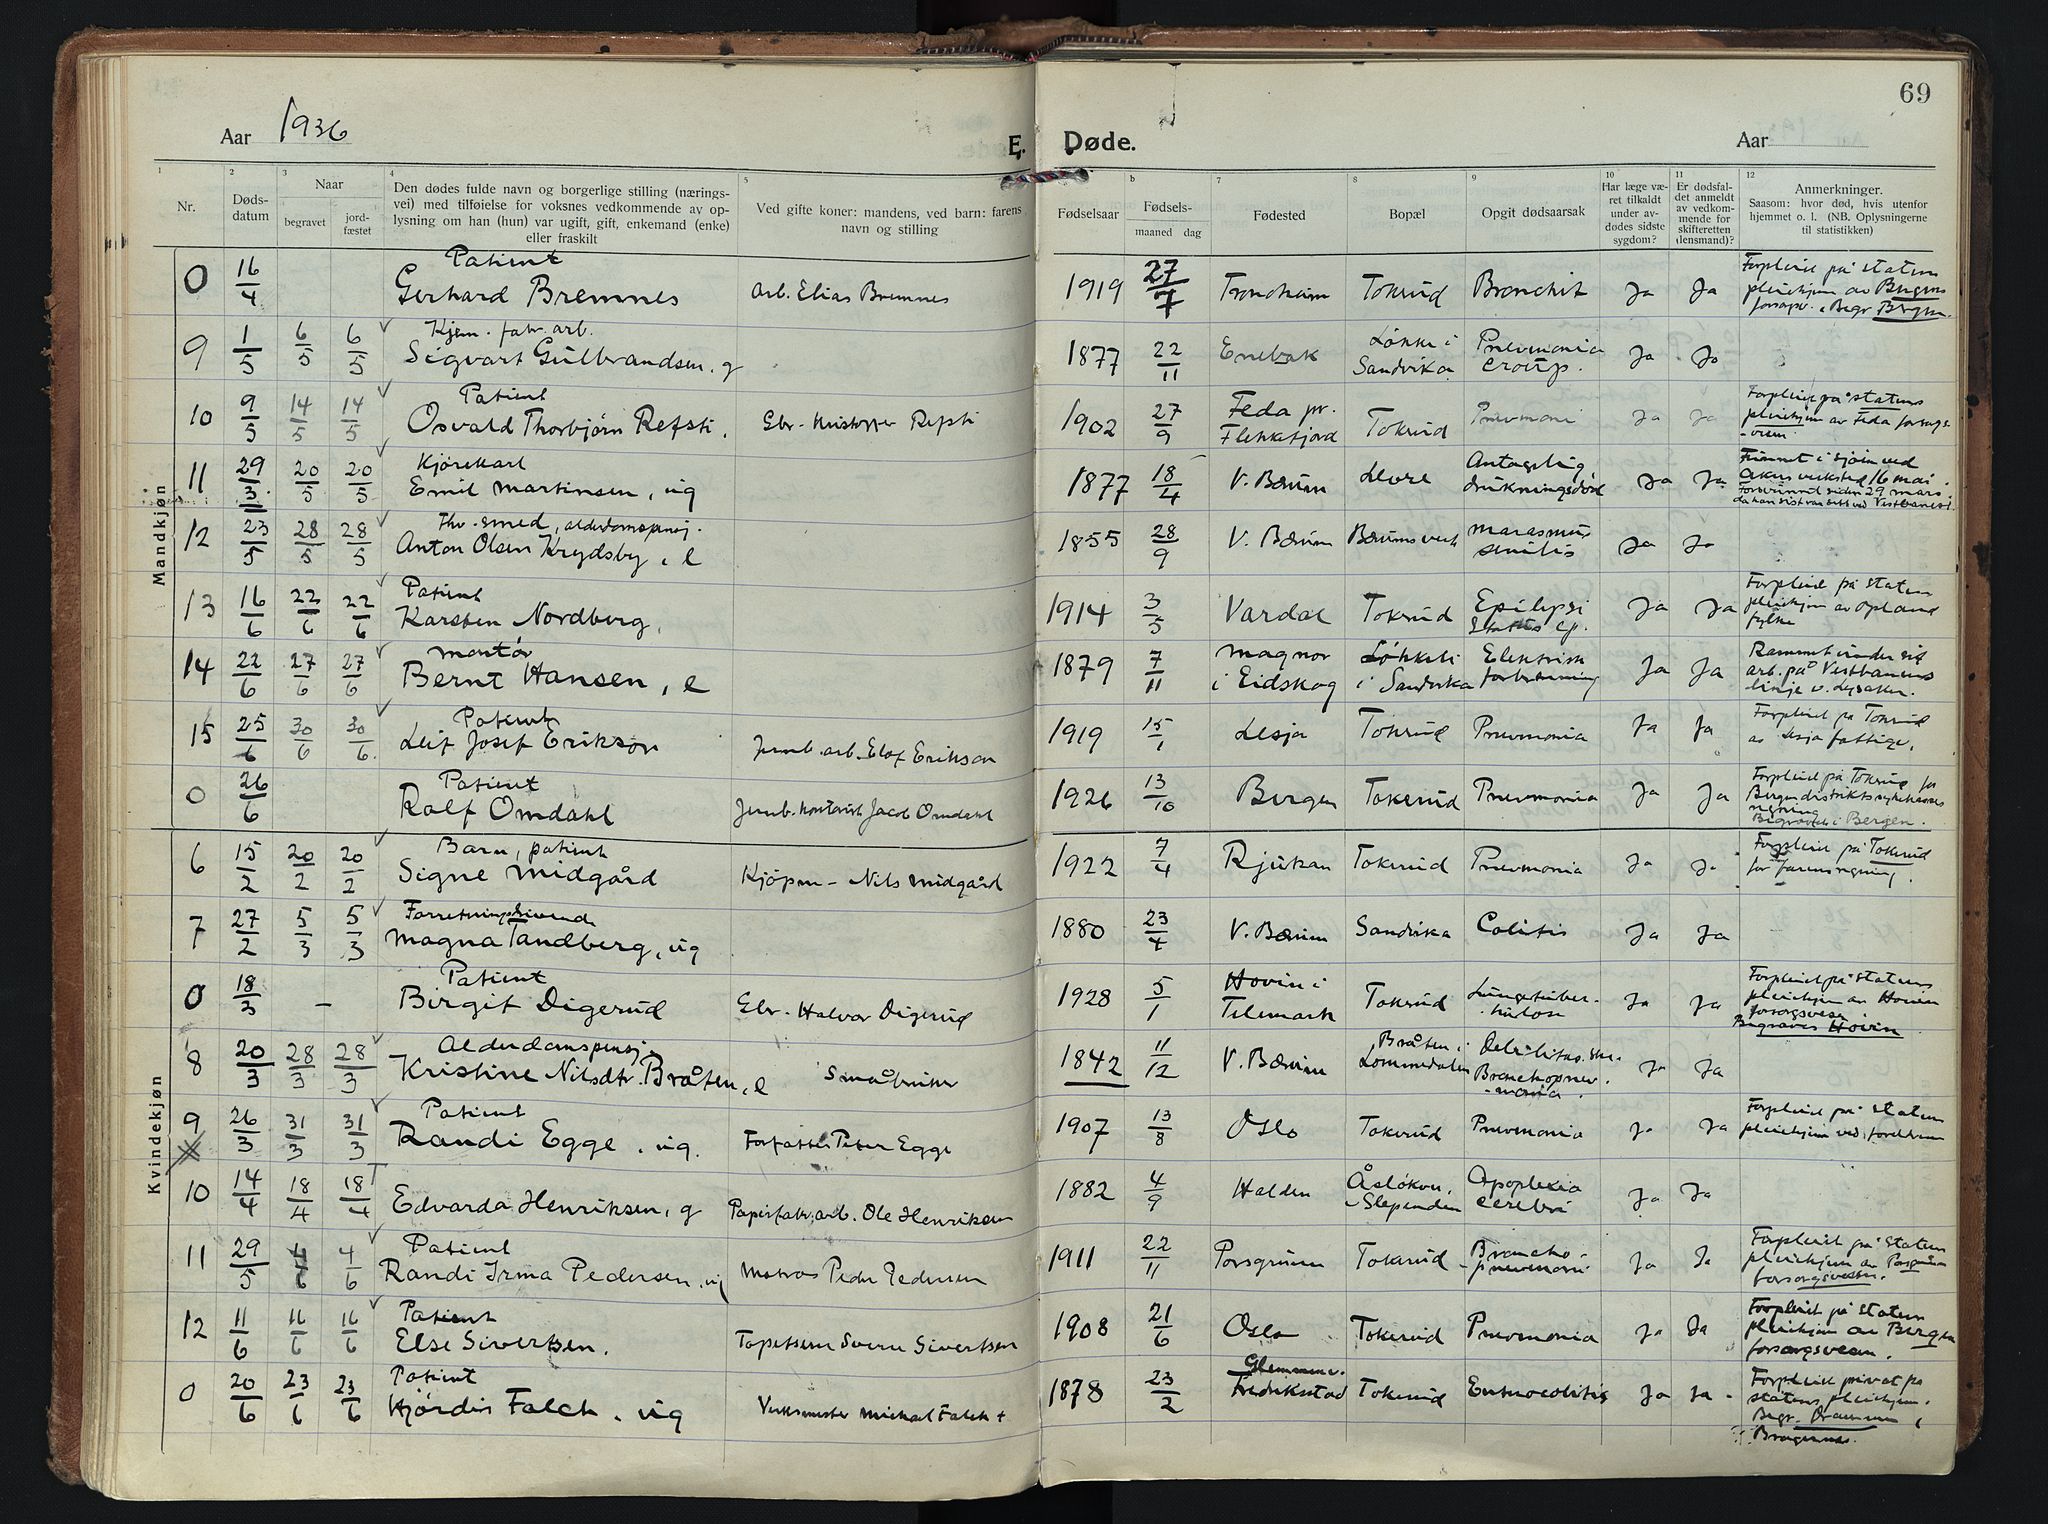 69
Aar 1936 E. Døde. Aar
1 2 3 4 5 6 7 8 9 10 11 12
Nr. Dødsdatum Naar begravet jordfæstet
Den dødes fulde navn og borgerlige stilling (næringsvei) med tilføielse for voksnes vedkommende av oplysning om han (hun) var ugift, gift, enkemand (enke) eller fraskilt
Ved gifte koner: mandens, ved barn: farens navn og stilling
Fødselsaar b Fødselsmaaned dag Fødested Bopæl Opgit dødsaarsak
Har læge været tilkaldt under avdødes sidste sygdom?
Er dødsfaldet anmeldt av vedkommende for skifteretten (lensmand)?
Anmerkninger. Saasom: hvor død, hvis utenfor hjemmet o. l. (NB. Oplysningerne til statistikken)
Mandkjøn
0 16/4 Patient Gerhard Bremnes arb. Elias Bremnes 1919 27/7 Trondheim Tokerud Bronchit Ja Ja Forpleiet på statens pleiehjem av Bergens forsorgsv. Begr. Bergen.
9 1/5 6/5 6/5 Kjem. fabr. arb. Sigvart Gulbrandsen, g 1877 22/11 Enebak Løkke i Sandvika Pnevmonia croup. Ja Ja
10 9/5 14/5 14/5 Patient Osvald Thorbjørn Refsti. Gbr. Kristoffer Refsti 1902 27/9 Feda pr. Flekkefjord Tokerud Pnevmoni Ja Ja Forpleiet på statens pleiehjem av Feda forsorgsvesen
11 29/3 20/5 20/5 Kjørekarl Emil Martinsen, ug 1877 18/4 V. Bærum Levre Antagelig drukningsdød Ja Ja Funnet i sjøen ved Akers verksted 16 mai. Forsvunnet siden 29 mars da han sist var sett ved Vestbanest.
12 23/5 28/5 28/5 Fhv. smed, alderdomspensj. Anton Olsen Krydsby, e 1855 28/9 V. Bærum Bærums verk Marasmus senilis Ja Ja
13 16/6 22/6 22/6 Patient Karsten Nordberg. 1914 3/5 Vardal Tokerud Epilepsi Status ep. Ja Ja Forpleiet på statens pleiehjem av Opland fylke
14 22/6 27/6 27/6 Montør Bernt Hansen, e 1879 7/11 Magnor i Eidskog Løkkeli i Sandvika Elektrisk forbrenning Ja Ja Rammet under sit arb. på Vestbanens linje v. Lysaker.
15 25/6 30/6 30/6 Patient Leif Josef Erikson Jernb. arb. Elof Erikson 1919 15/1 Lesja Tokerud Pnevmonia Ja Ja Forpleiet på Tokerud av Lesja fattigv.
0 26/6 Patient Rolf Omdahl Jernb. kontorist Jacob Omdahl 1926 13/10 Bergen Tokerud Pnevmonia Ja Ja Forpleiet på Tokerud for Bergen distriktssykekasses regning Begravet i Bergen.
Kvindekjøn
6 15/2 20/2 20/2 Barn, patient Signe Midgård Kjøpm. Nils Midgård 1922 7/4 Rjukan Tokerud Pnevmonia Ja Ja Forpleiet på Tokerud for farens regning.
7 27/2 5/3 5/3 Forretningsdrivende Magna Tandberg, ug 1880 23/4 V. Bærum Sandvika Colitis Ja Ja
0 18/3 – Patient Birgit Digerud Gbr. Halvor Digerud 1928 5/1 Hovin i Telemark Tokerud Lungetuberkulose Ja Ja Forpleiet på statens pleiehjem av Hovin forsorgsvesen Begraves Hovin
8 20/3 28/3 28/3 Alderdomspensj. Kristine Nilsdtr. Bråten, e Småbruker 1842 11/12 V. Bærum Bråten i Lommedalen Debilitas sen. Bronchopnevmonia. Ja Ja
9 26/3 31/3 31/3 Patient Randi Egge, ug. Forfatter Peter Egge 1907 13/8 Oslo Tokerud Pnevmonia Ja Ja Forpleiet på statens pleiehjem ved foreldrene
10 14/4 18/4 18/4 Edvarda Henriksen, g Papirfabr. arb. Ole Henriksen 1882 4/9 Halden Åsløkken, Slependen Apoplexia cerebri Ja Ja
11 29/5 4/6 4/6 Patient Randi Irma Pedersen, ug Matros Peder Pedersen 1911 22/11 Porsgrunn Tokerud Bronchopnevmoni Ja Ja Forpleiet på statens pleiehjem av Porsgrunn forsorgsvesen.
12 11/6 16/6 16/6 Patient Else Sivertsen. Tapetserer Sverre Sivertsen 1908 21/6 Oslo Tokerud Pnevmonia Ja Ja Forpleiet på statens pleiehjem av Bergen forsorgsvesen.
0 20/6 23/6 23/6 Patient Hjørdis Falch, ug Verksmester Michael Falch + 1878 23/2 Glemmen v. Fredriksstad Tokerud Enterocolitis Ja Ja Forpleiet privat på statens pleiehjem. Begr. Drammen, Bragernes.